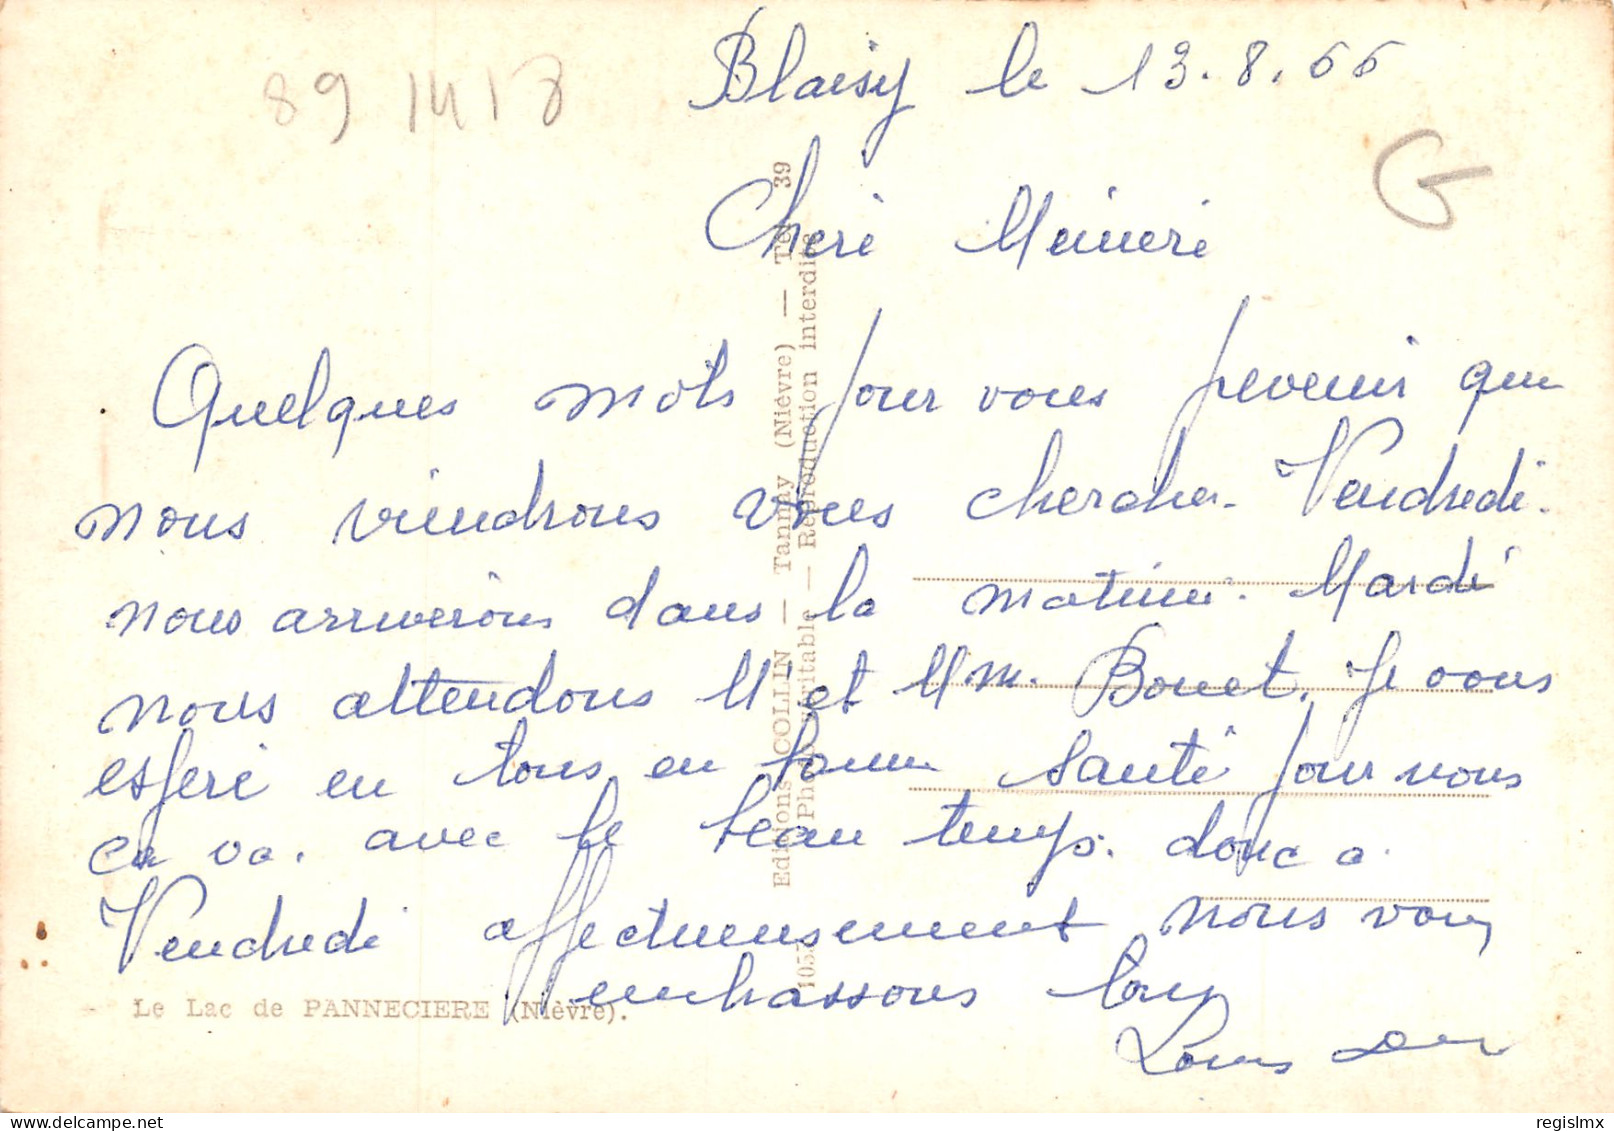 Blaisy le 13.8.66
89 1418
Cheri Mémeré
Quelques mots pour vous prevenir que
nous viendrons vous chercher Vendredi.
nous arriverons dans la matinée. Mardi
nous attendons Mr et Mm. Bonet. Je vous
esperé en tous en bonne santé pour nous
ca va. avec le beau temps. donc a
Vendredi affectueusement nous vous
embrassons tous
Louis
Le Lac de PANNECIERE (Nièvre).
Editions COLLIN — Tannay (Nièvre) — Tél. 39
Photo véritable — Reproduction interdite
regislmx